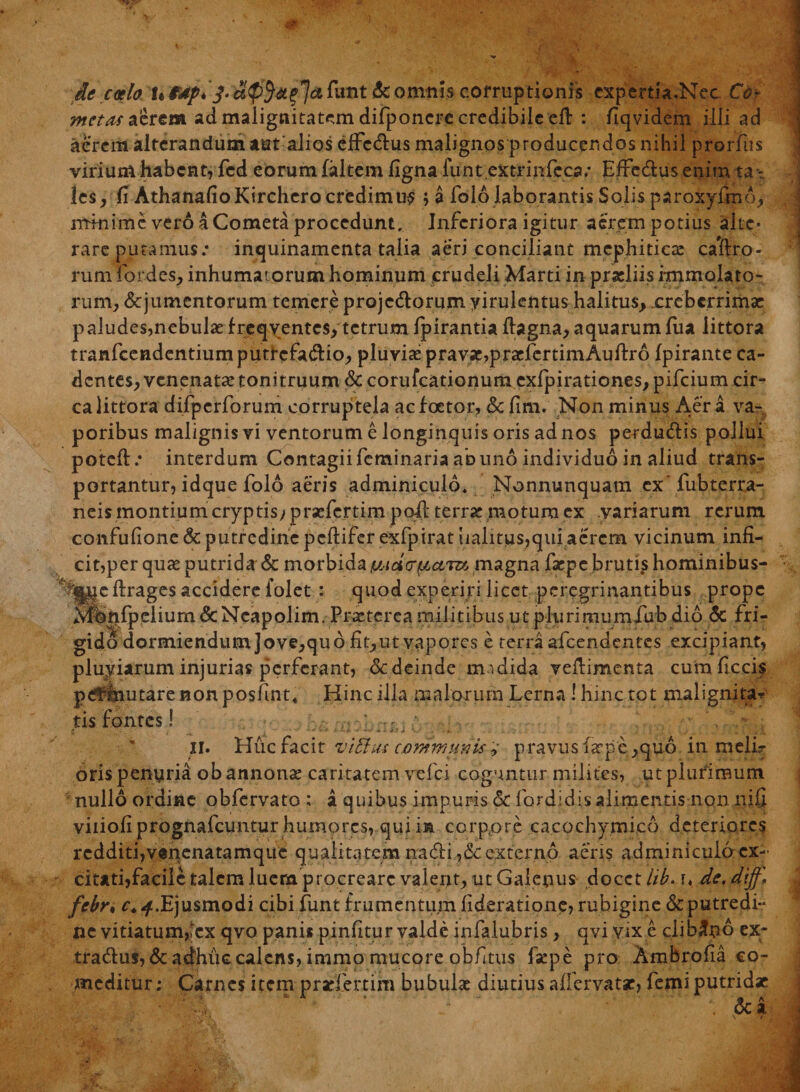 de cœlo. t. cap. 3. ἄφθαρτα sunt & omnis corruptionis expertia. Nec Co-
metas aërem ad malignitatem disponere credibile est : siqvidem illi ad
aërem alterandum aut alios effectus malignos producendos nihil prorsus
virium habent, sed eorum saltem signa sunt extrinseca; Effectus enim ta-
les, si Athanasio Kirchero credimus ; â solô laborantis Solis paroxysmô,
minimè verò â Cometâ procedunt. Inferiora igitur aërem potius alte-
rare putamus: inquinamenta talia aëri conciliant mephiticæ castro-
rum sordes, inhumatorum hominum crudeli Marti in præliis immolato-
rum, & jumentorum temerè projectorum virulentus halitus, creberrimæ
paludes, nebulæ freqventes, tetrum spirantia stagna, aquarum sua littora
transcendentium putrefactio, pluviæ pravæ, præsertim Austrô spirante ca-
dentes, venenatæ tonitruum & coruscationum exspirationes, piscium cir-
ca littora dispersorum corruptela ac foetor, & sim. Non minus Aër â va-
poribus malignis vi ventorum ê longinquis oris ad nos perductis pollui
potest: interdum Contagii seminaria ab unô individuô in aliud trans-
portantur, idque solô aëris adminiculô. Nonnunquam ex subterra-
neis montium cryptis, præsertim post terræ motum ex variarum rerum
confusione & putredine pestifer exspirat halitus, qui aërem vicinum infi-
cit, per quæ putrida & morbida μιάσματα magna sæpe brutis hominibus-
que strages accidere solet : quod experiri licet peregrinantibus prope
Monspelium & Neapolim. Præterea militibus ut plurimum sub diô & fri-
gidô dormiendum Jove, quò fit, ut vapores è terrâ ascendentes excipiant,
pluviarum injurias perferant, & deinde madida vestimenta cum siccis
permutare non possint. Hinc illa malorum Lerna ! hinc tot malignita-
tis fontes !
II. Hûc facit victus communis, pravus sæpè, quô in melio-
oris penuriâ ob annonæ caritatem vesci coguntur milites, ut plurimum
nullô ordine observato : â quibus impuris & sordidis alimentis non nisi
vitiosi prognascuntur humores, qui in corpore cacochymicô deteriores
redditi, venenatamque qualitatem nacti, & externô aëris adminiculô ex-
citati, facilè talem luem procreare valent, ut Galenus docet lib. 1. de. diff.
febr. c. 4. Ejusmodi cibi sunt frumentum sideratione, rubigine & putredi-
ne vitiatum, ex qvo panis pinsitur valdè insalubris, qvi vix è clibanô ex-
tractus, & adhûc calens, immo mucore obsitus sæpè pro Ambrosiâ co-
meditur; Carnes item præsertim bubulæ diutius asservatæ, semi putridæ
& â